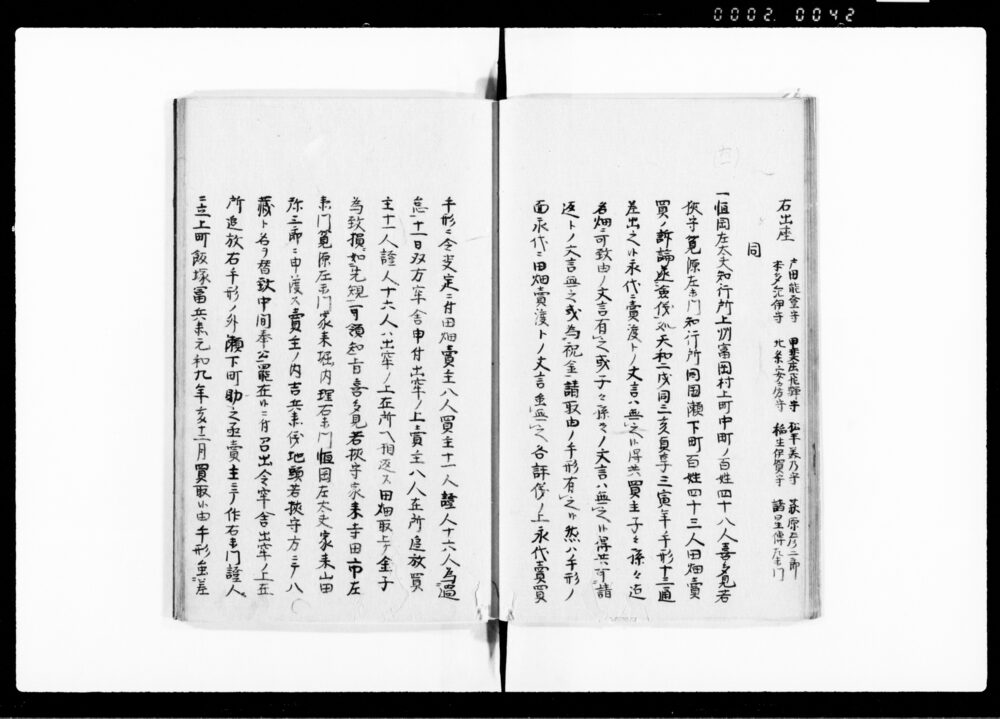 0002.0042
右出座
戸田能登守 甲斐庄飛騨守 松平美乃守 荻原彦二郎
本多紀伊守 北条安房守 稲生伊賀守 諸星傳左衛門
同
一恒岡左太夫知行所上刕冨岡村上町中町ノ百姓四十八人喜多見若
狭守筧源左衛門知行所同国瀬下町百姓四十三人田畑賣
買ノ訴論遂僉儀処天和二戌同三亥貞享三寅年手形十三通
差出之外永代ニ賣渡トノ文言ハ無之候得共買主子々孫々迄
名畑ニ可致由ノ文言有之或子々孫々ノ文言ハ無之候得共可請
返トノ文言無之或為祝金請取由ノ手形有之候然ハ手形ノ
面永代ニ田畑賣渡トノ文言無之各評儀ノ上永代賣買
手形ニ令決定ニ付田畑賣主八人買主十一人證人十六人為過
怠十一日双方牢舎申付出牢ノ上賣主八人在所追放買
主十一人證人十六人ハ出牢ノ上在所ヘ相返ス田畑取上ケ金子
為致損如先規可領知旨喜多見若狭守家来寺田市左
衛門筧源左衛門家来堀内理右衛門恒岡左太夫家来山田
弥三郎ニ申渡ス賣主ノ内吉兵衛儀地頭若狭守方ニテ八
藏ト名ヲ替致中間奉公罷在候ニ付召出令牢舎出牢ノ上在
所追放右手形ノ外瀬下町助之丞賣主ニテ作右衛門證人
ニ立上町飯塚冨兵衛元和九年亥十二月買取候由手形壱差